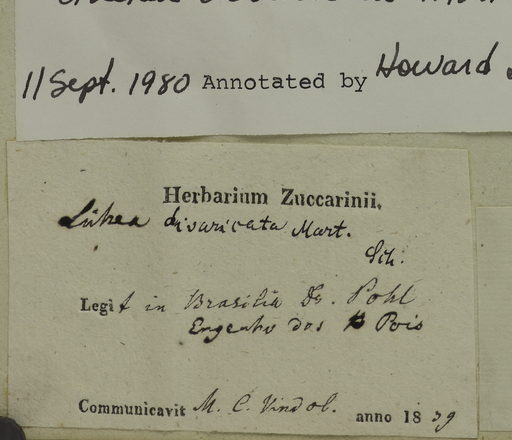 11 Sept. 1980 Annotated by Howard
Herbarium Zuccarinii.
Lühea divaricata Mart.
Sch.
Legit in Brasilia Dr. Pohl
Engenho dos Pois
Communicavit M. C. Vindol. anno 1839